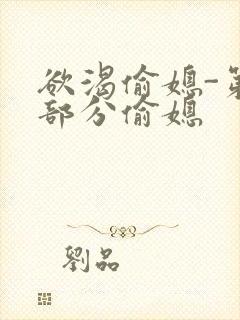 欲渴偷媳-第
部分偷媳
劉品